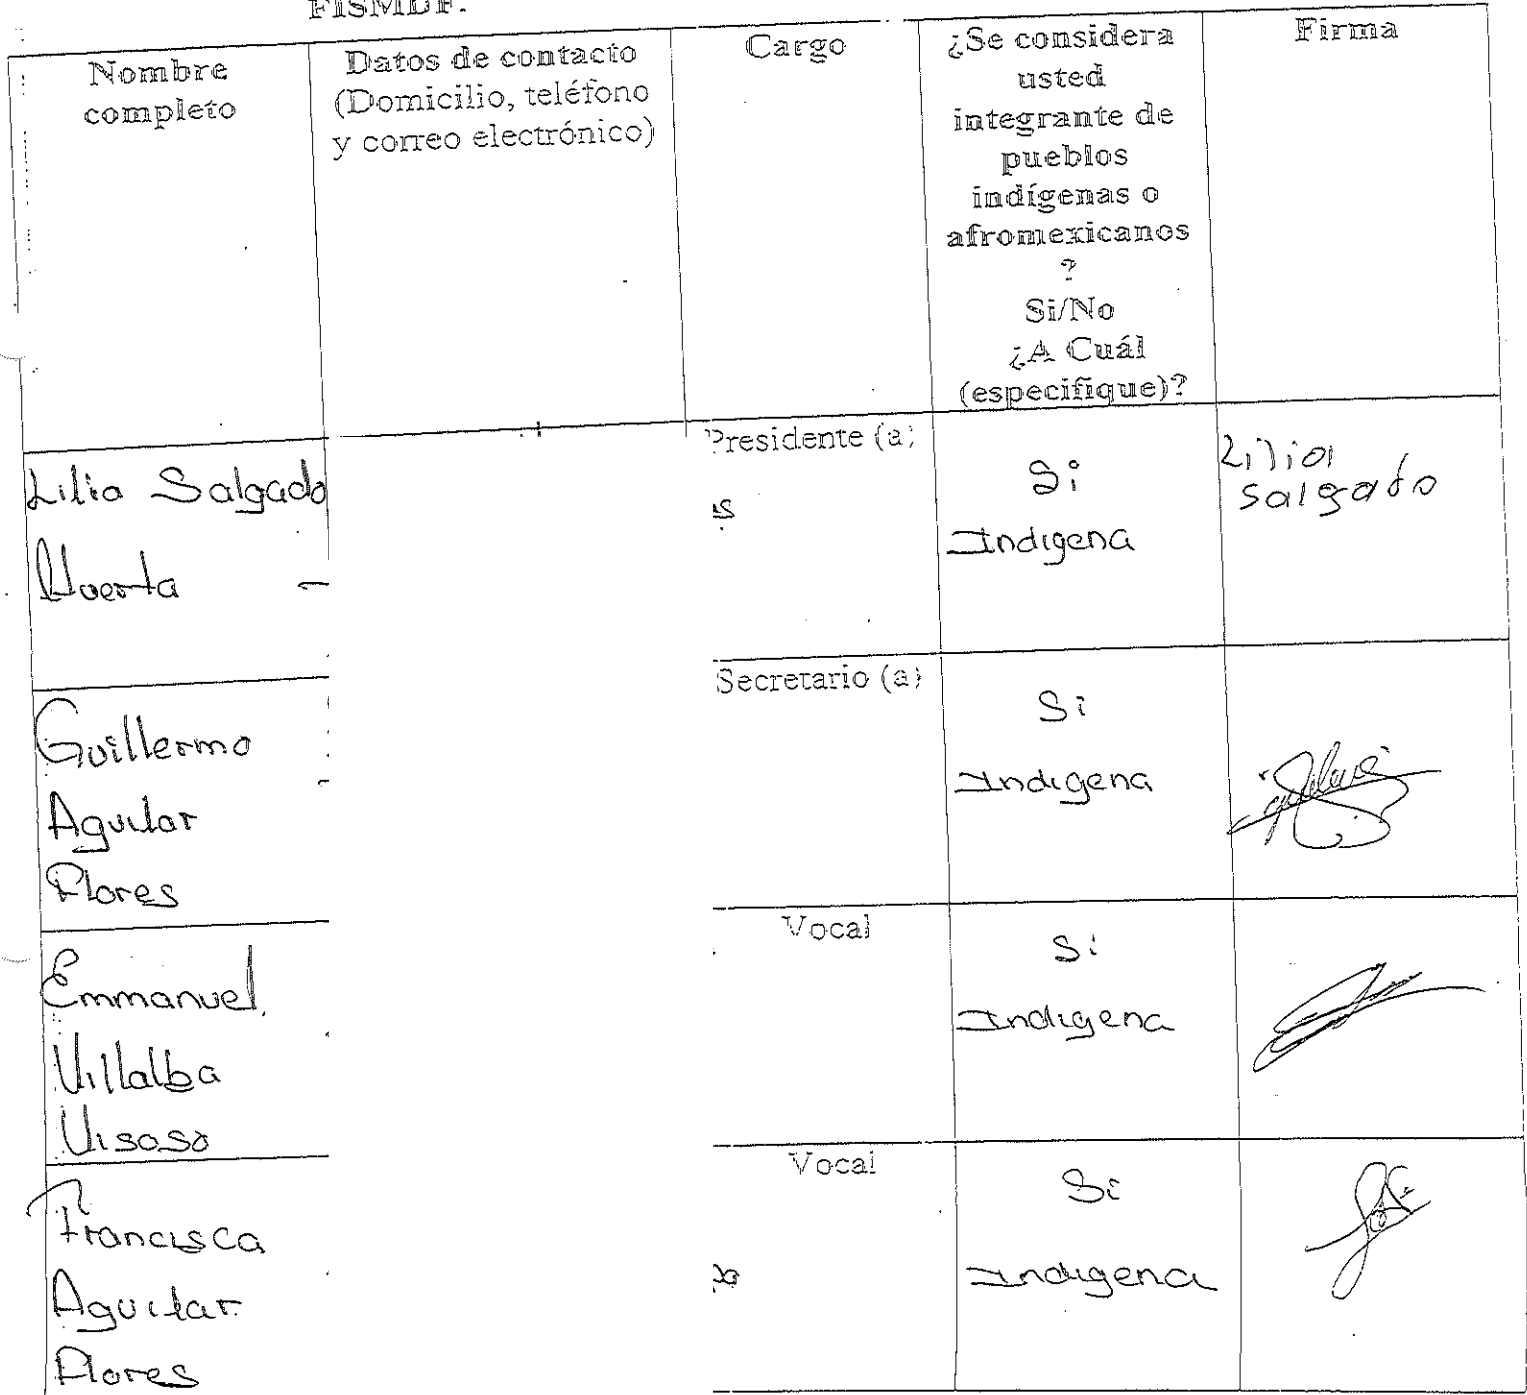 FISMDF.
Nombre
completo
Datos de contacto
(Domicilio, teléfono
y correo electrónico)
Cargo
¿Se considera
usted
integrante de
pueblos
indígenas o
afromexicanos
?
Si/No
¿A Cuál
(especifique)?
Firma
Lilia Salgado
Huerta
Presidente (a)
Si
Indigena
Lilia
Salgado
Guillermo
Aguilar
Flores
Secretario (a)
Si
Indigena
Emmanuel
Villalba
Visoso
Vocal
Si
Indigena
Francisca
Aguilar
Flores
Vocal
Si
Indigena